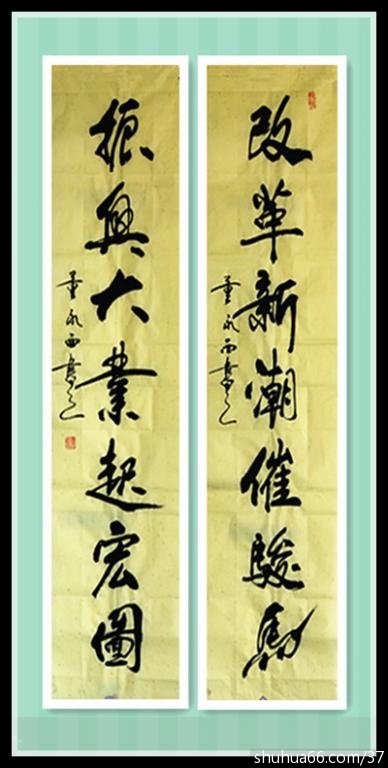 改革新潮催駿馬
董永西書
振興大業起宏圖
董永西書
shuhua66.com/37